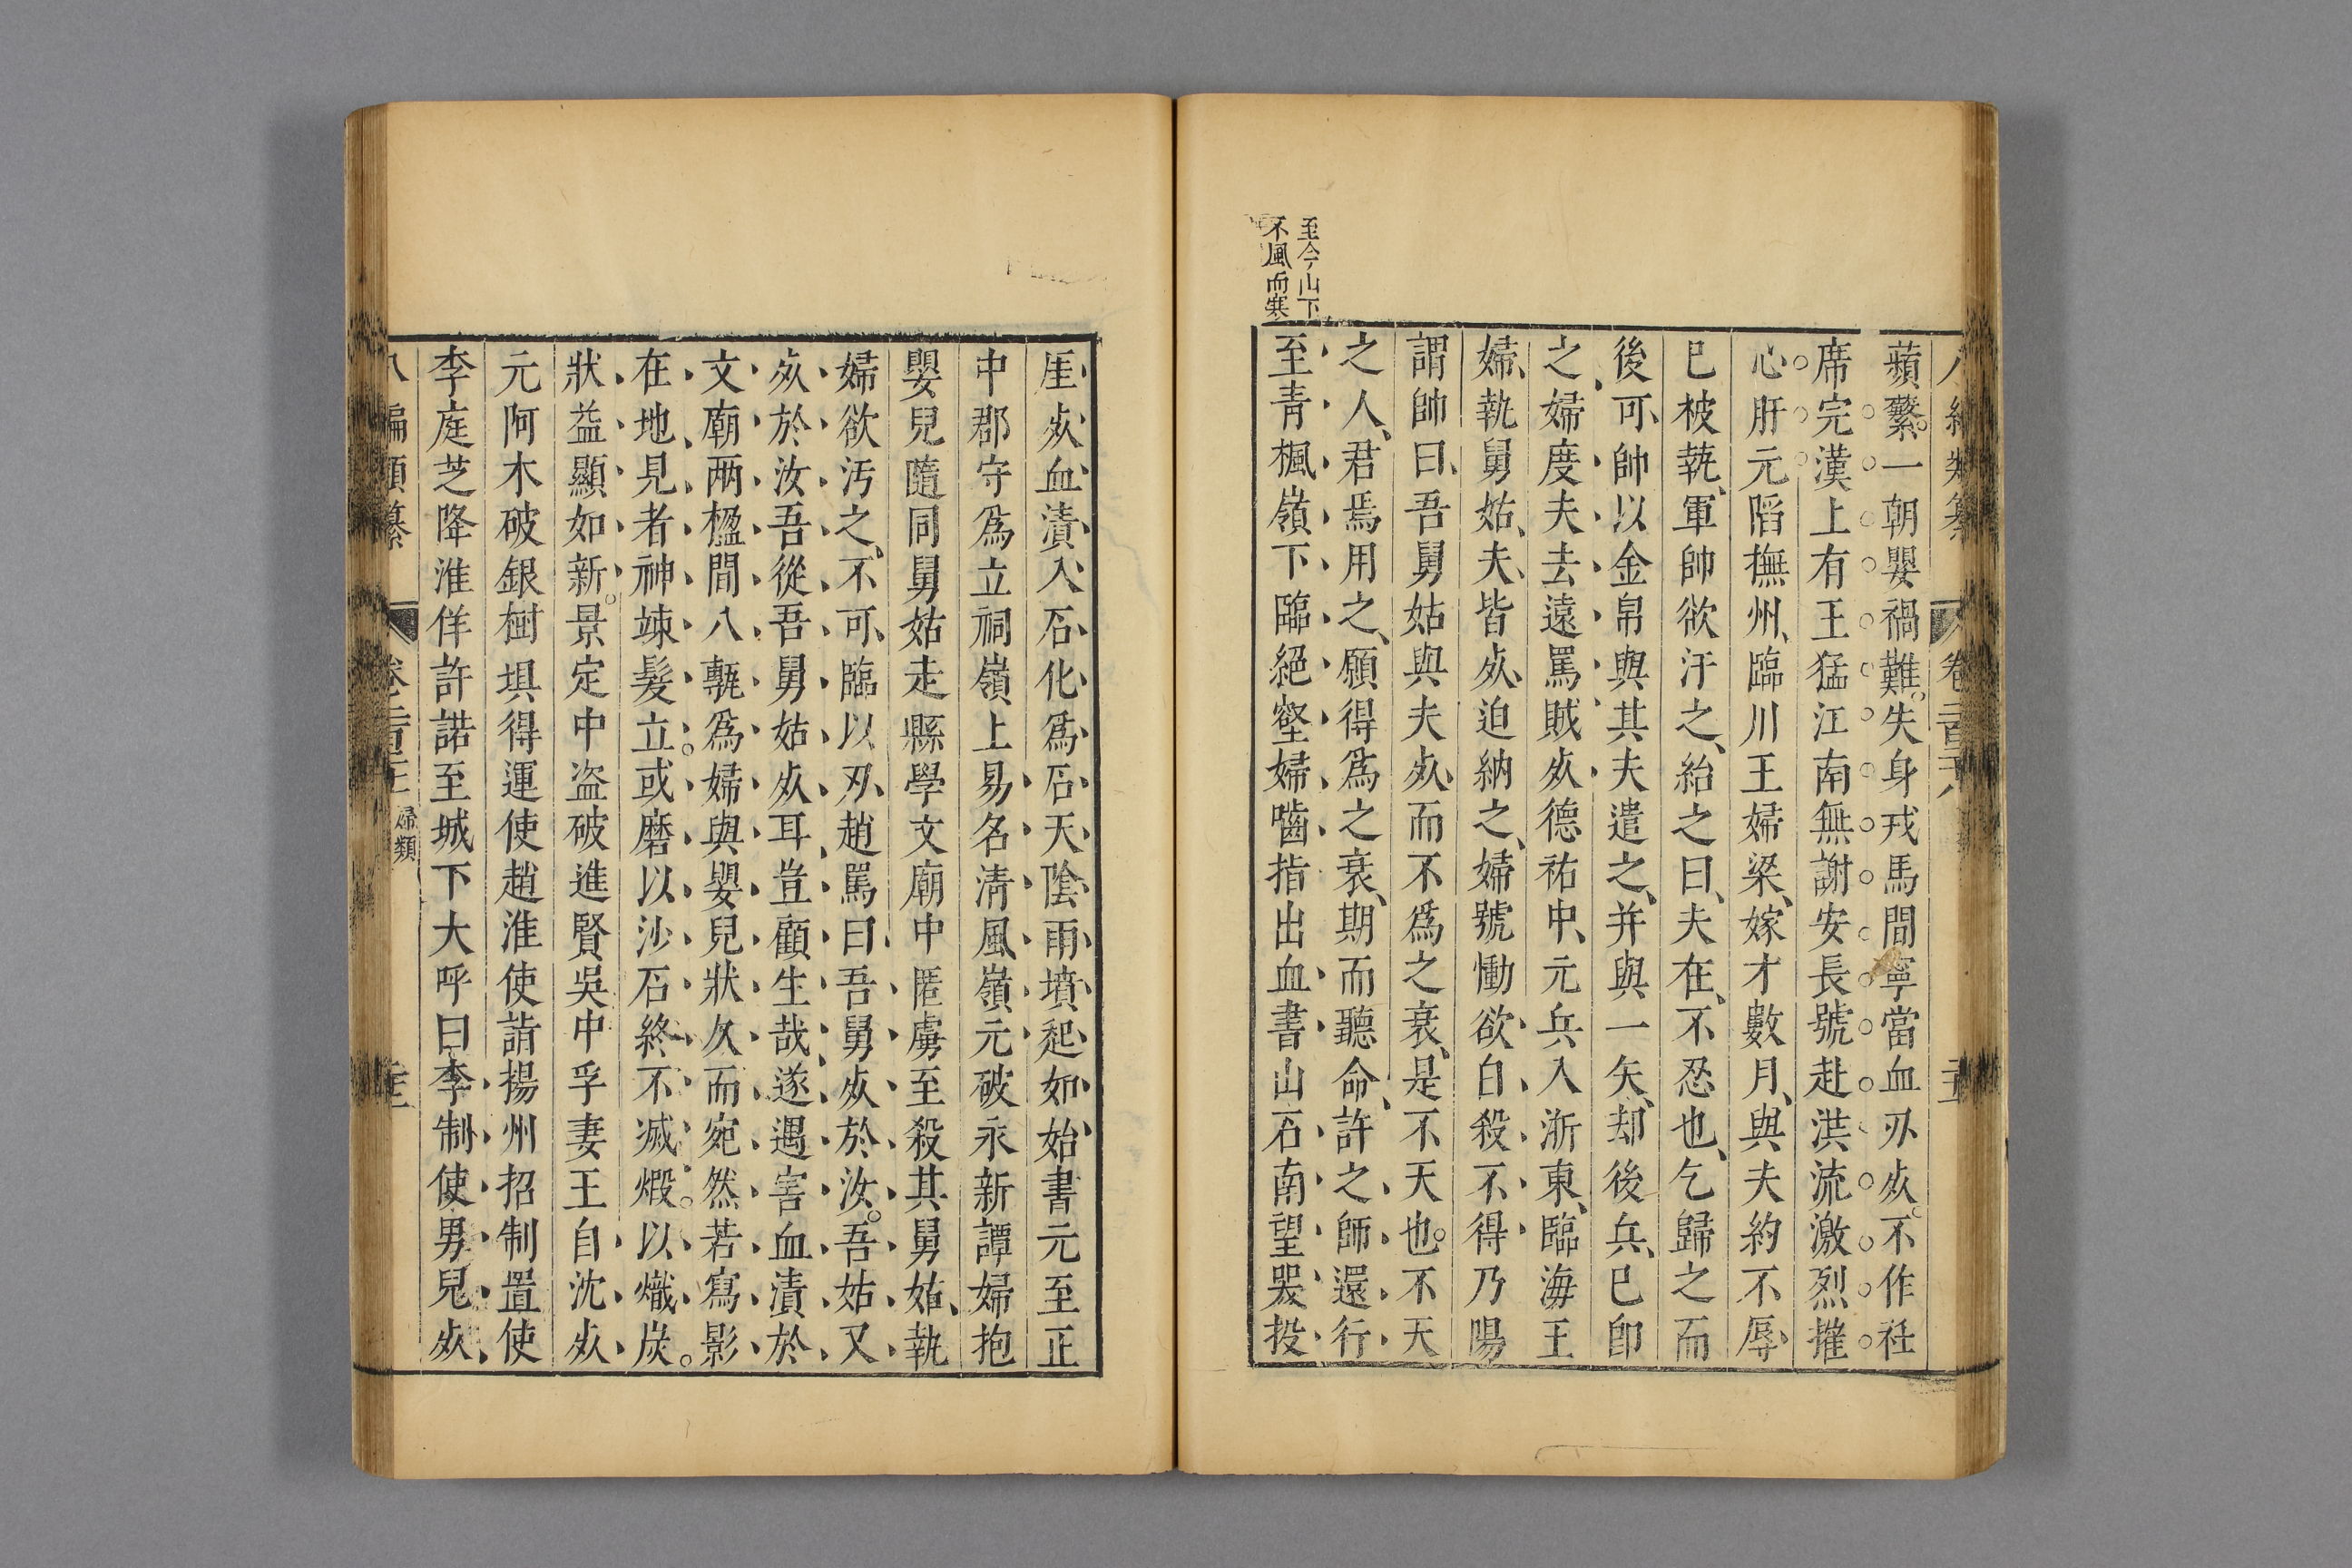 至今山下
不風而寒
蘋蘩一朝嬰禍難失身戎馬間寧當血刃㱕不作衽
席完漢上有王猛江南無謝安長號赴洪流激烈摧
心肝元陷撫州臨川王婦梁嫁才數月與夫約不辱
已被執軍帥欲汙之紿之曰夫在不忍也乞歸之而
後可帥以金帛與其夫遣之并與一矢却後兵已卽
之婦度夫去遠罵賊㱕德祐中元兵入浙東臨海王
婦執舅姑夫皆㱕迫納之婦號慟欲自殺不得乃陽
謂帥曰吾舅姑與夫㱕而不爲之衰是不天也不天
之人君焉用之願得爲之衰期而聽命許之師還行
至青楓嶺下臨絕壑婦嚙指出血書山石南望哭投
崖㱕血漬入石化爲石天陰雨墳起如始書元至正
中郡守爲立祠嶺上易名淸風嶺元破永新譚婦抱
嬰兒隨同舅姑走縣學文廟中匿虜至殺其舅姑執
婦欲汚之不可臨以刃趙罵曰吾舅㱕於汝吾姑又
㱕於汝吾從吾舅姑㱕耳豈顧生哉遂遇害血漬於
文廟兩楹間八甎爲婦與嬰兒狀久而宛然若寫影
在地見者神竦髮立或磨以沙石終不滅煅以熾炭
狀益顯如新景定中盜破進賢吳中孚妻王自沈㱕
元阿木破銀樹垻得運使趙淮使誚揚州招制置使
李庭芝降淮佯許諾至城下大呼曰李制使男兒㱕
八編類纂
婦類